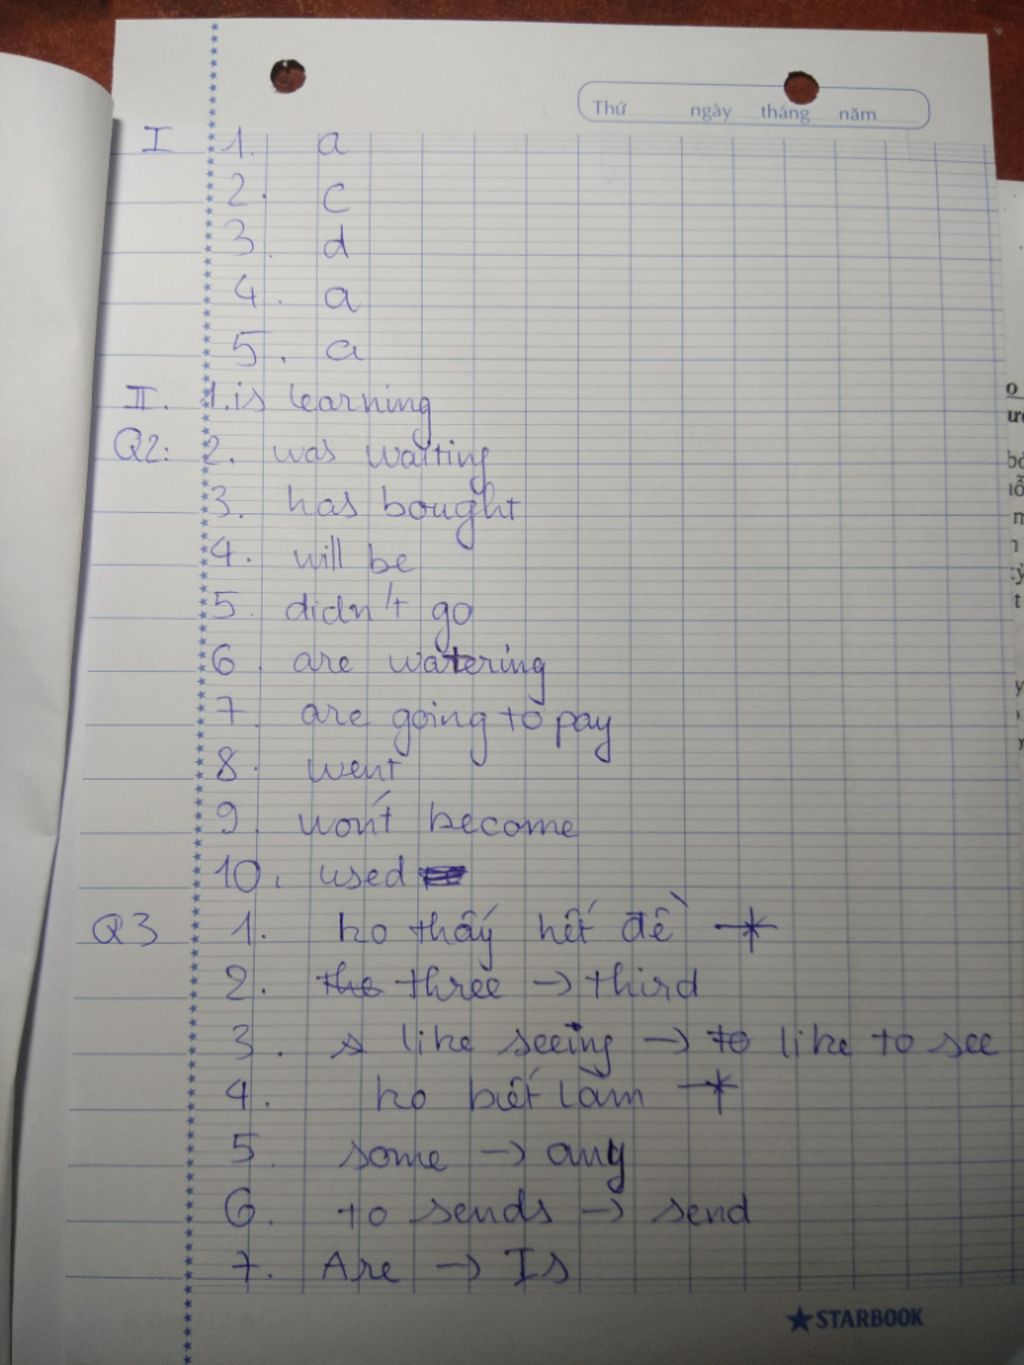 Thứ ngày tháng năm
I 1. a
2. c
3. d
4. a
5. a
II. 1. is learning
Q2: 2. was waiting
3. has bought
4. will be
5. didn't go
6. are watering
7. are going to pay
8. went
9. won't become
10. used
Q3 1. ko thấy hết đề *
2. the three → third
3. s like seeing → to like to see
4. ko biết làm *
5. some → any
6. to sends → send
7. Are → Is
★ STARBOOK